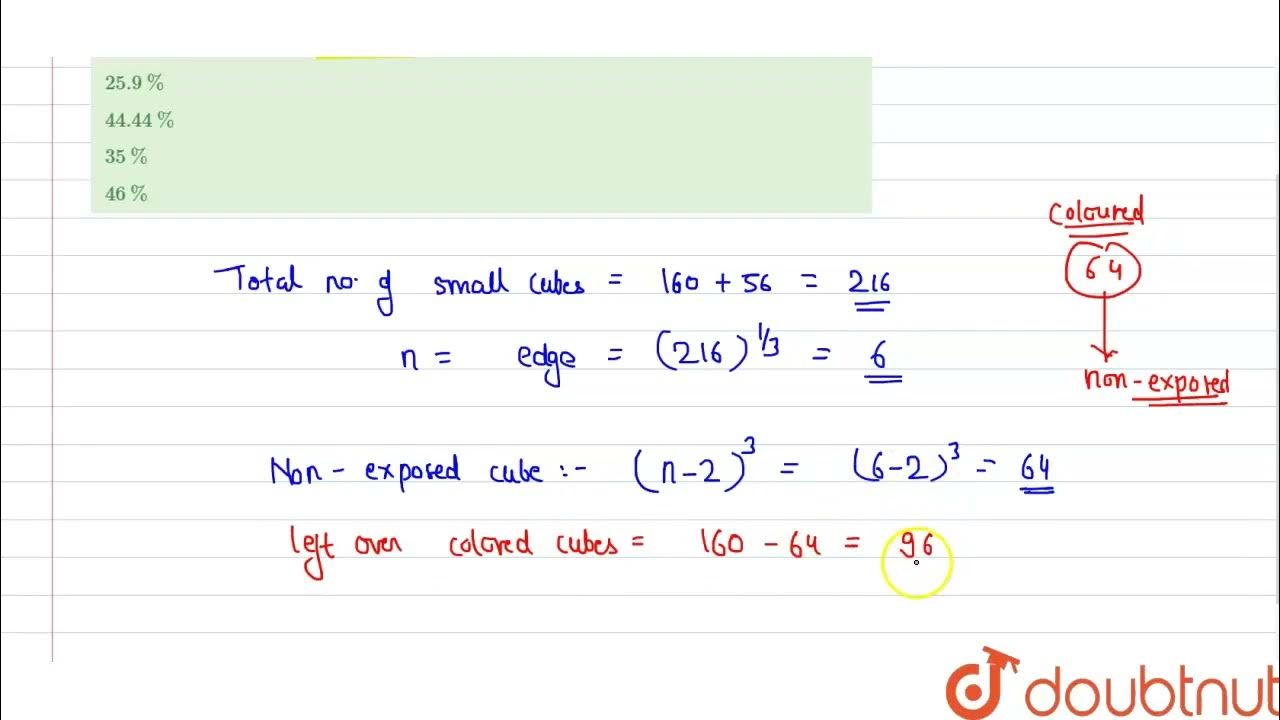 25.9 %
44.44 %
35 %
46 %
coloured
64
Total no. of small cubes = 160 + 56 = 216
n = edge = (216)^1/3 = 6
non-exposed
Non - exposed cube :- (n-2)^3 = (6-2)^3 = 64
left over colored cubes = 160 - 64 = 96
doubtnut